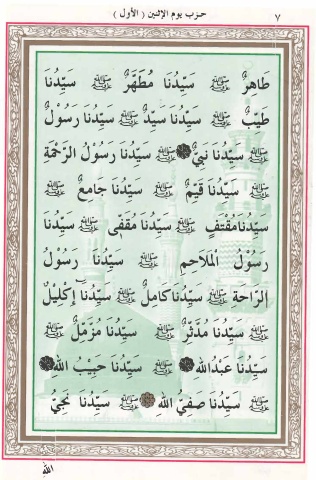 ٧ حزب يوم الإثنين ( الأول )
طَاهِرٌ ﷺ سَيِّدُنَا مُطَهَّرٌ ﷺ سَيِّدُنَا
طَيِّبٌ ﷺ سَيِّدُنَا سَيِّدٌ ﷺ سَيِّدُنَا رَسُولٌ
ﷺ سَيِّدُنَا نَبِيٌّ ﷺ سَيِّدُنَا رَسُولُ الرَّحْمَةِ
ﷺ سَيِّدُنَا قَيِّمٌ ﷺ سَيِّدُنَا جَامِعٌ ﷺ
سَيِّدُنَا مُقْتَفٍ ﷺ سَيِّدُنَا مُقَفًّى ﷺ سَيِّدُنَا
رَسُولُ الْمَلَاحِمِ ﷺ سَيِّدُنَا رَسُولُ
الرَّاحَةِ ﷺ سَيِّدُنَا كَامِلٌ ﷺ سَيِّدُنَا إِكْلِيلٌ
ﷺ سَيِّدُنَا مُدَّثِّرٌ ﷺ سَيِّدُنَا مُزَّمِّلٌ ﷺ
سَيِّدُنَا عَبْدُ اللهِ ﷺ سَيِّدُنَا حَبِيبُ اللهِ ﷺ
ﷺ سَيِّدُنَا صَفِيُّ اللهِ ﷺ سَيِّدُنَا نَجِيُّ
اللهِ